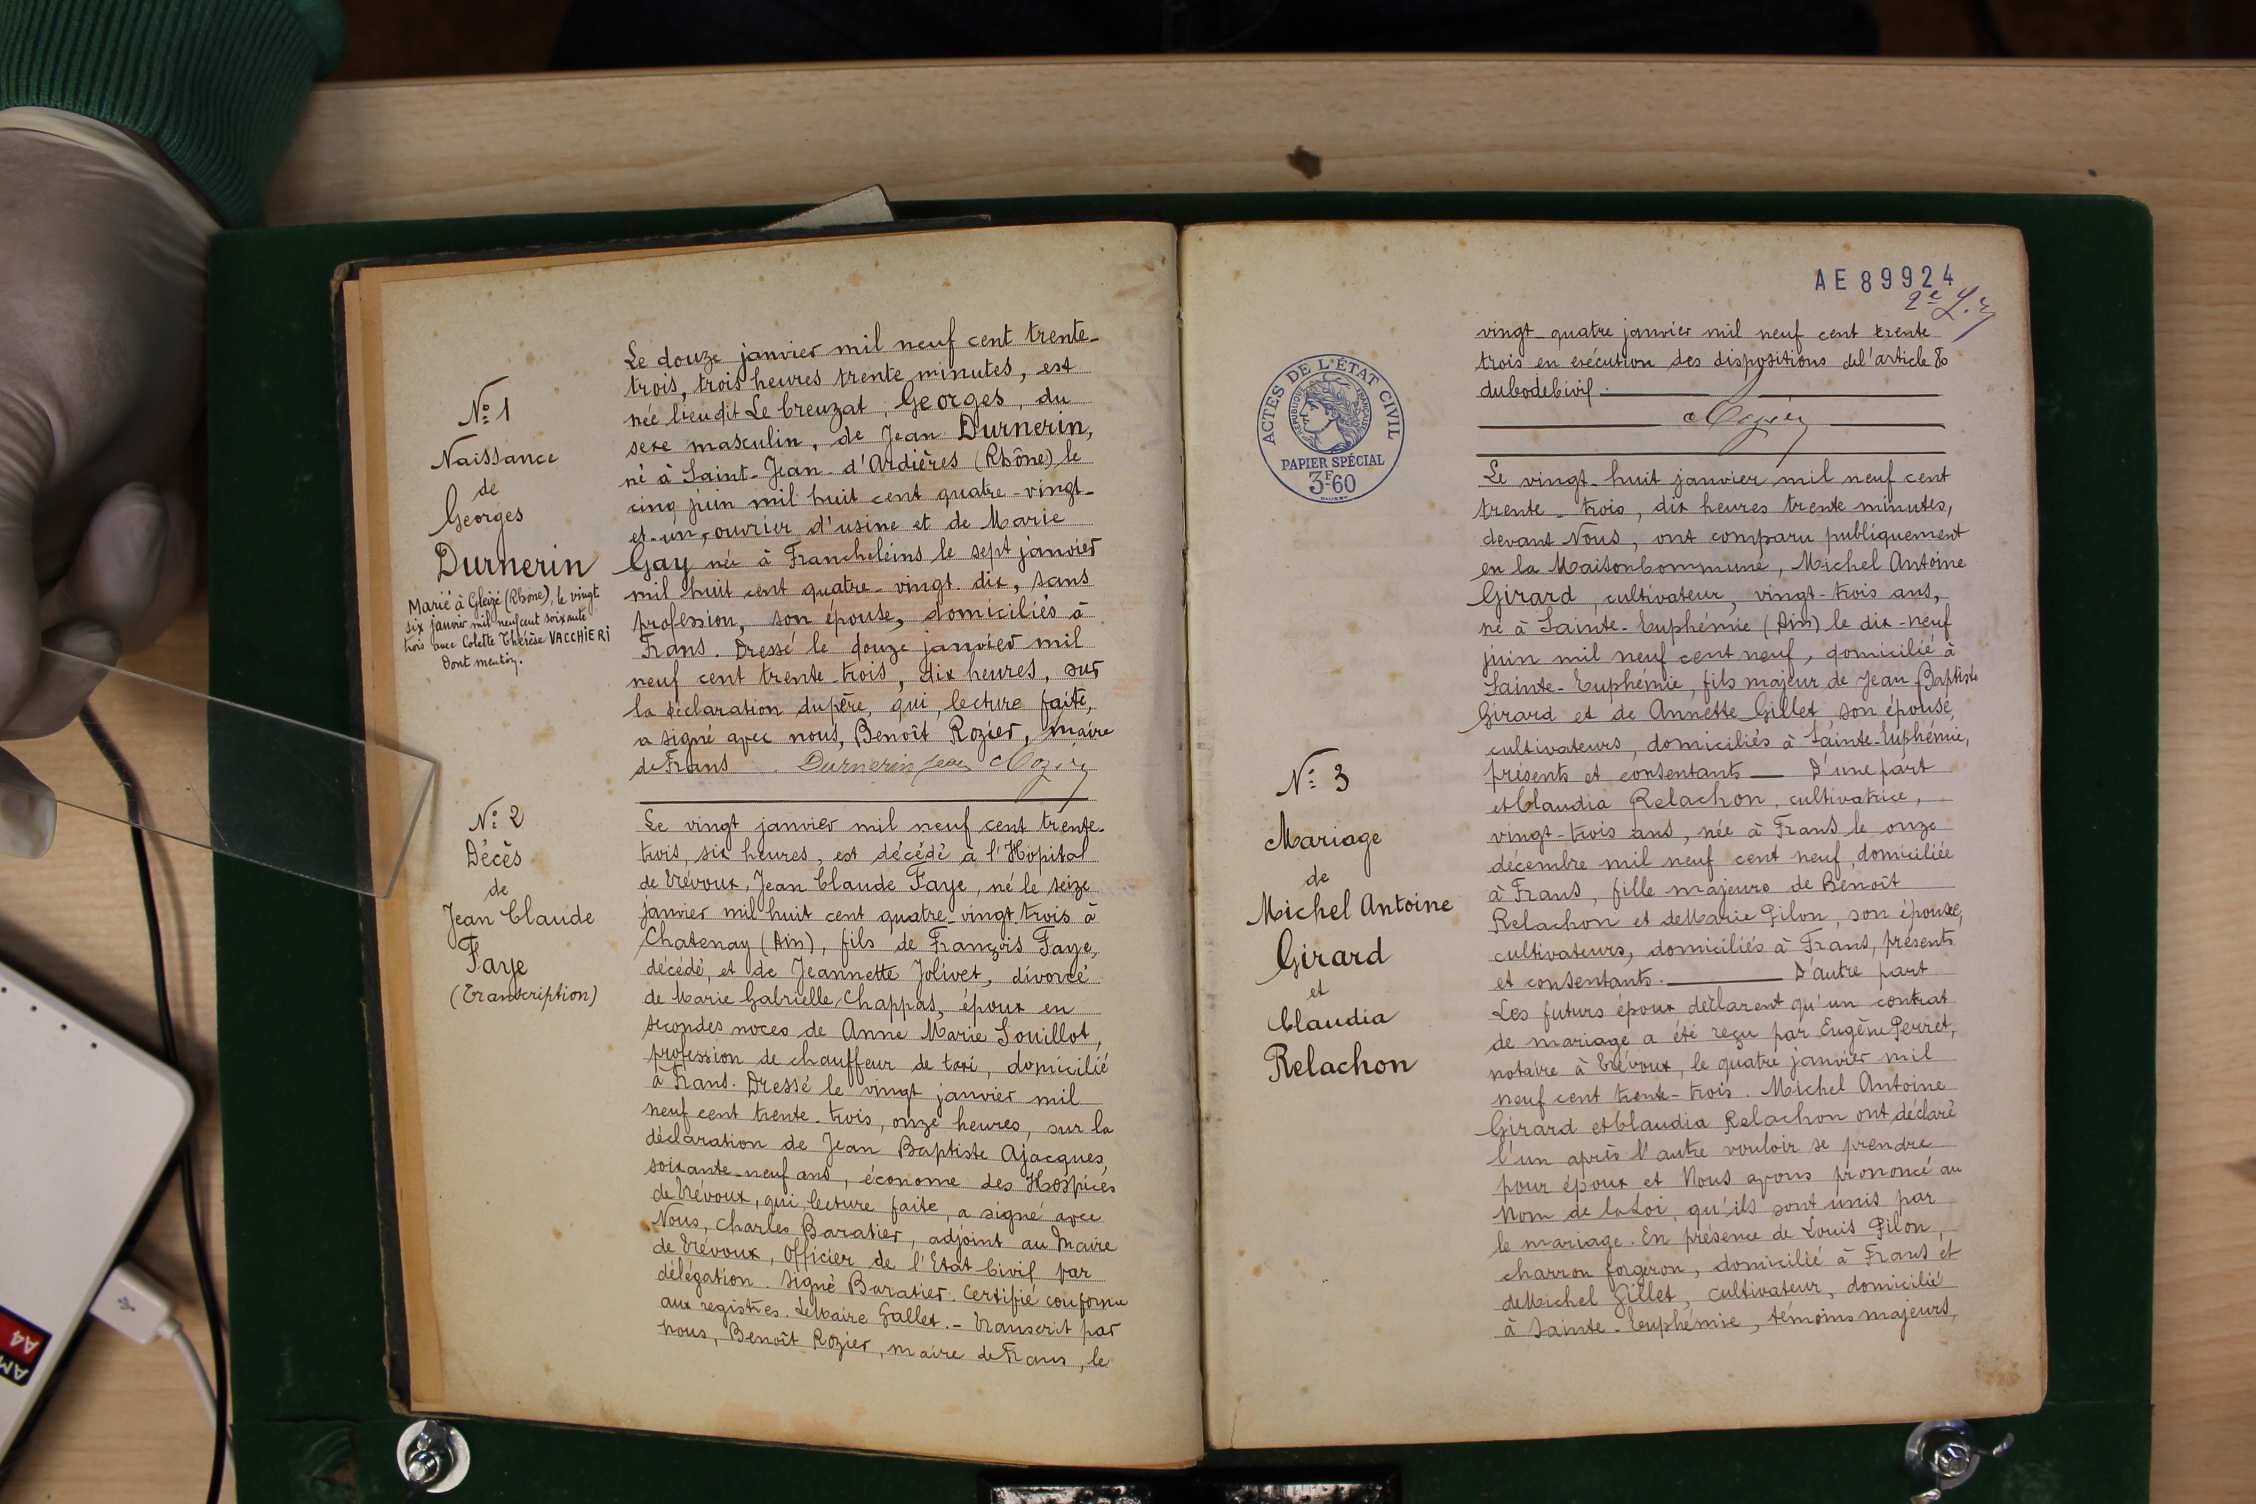 N° 1
Naissance
de
Georges
Durnerin
Marié à Gleizé (Rhône), le vingt
six janvier mil neuf cent soixante
trois avec Colette Thérèse VACCHIERI
Dont mention.
Le douze janvier mil neuf cent trente-
trois, trois heures trente minutes, est
née lieu dit Le Creuzat, Georges, du
sexe masculin, de Jean Durnerin,
né à Saint-Jean-d'Ardières (Rhône) le
cinq juin mil huit cent quatre-vingt-
et-un, ouvrier d'usine et de Marie
Gay née à Francheleins le sept janvier
mil huit cent quatre-vingt dix, sans
profession, son épouse, domiciliés à
Frans. Dressé le douze janvier mil
neuf cent trente-trois, dix heures, sur
la déclaration du père, qui, lecture faite,
a signé avec nous, Benoît Rozier, maire
de Frans. Durnerin Jean Rozier
N° 2
Décès
de
Jean Claude
Faye
(Transcription)
Le vingt janvier mil neuf cent trente-
trois, six heures, est décédé à l'Hopital
de Trévoux, Jean Claude Faye, né le seize
janvier mil huit cent quatre-vingt trois à
Chatenay (Ain), fils de François Faye,
décédé, et de Jeannette Jolivet, divorcé
de Marie Gabrielle Chappas, époux en
secondes noces de Anne Marie Souillot,
profession de chauffeur de taxi, domicilié
à Frans. Dressé le vingt janvier mil
neuf cent trente-trois, onze heures, sur la
déclaration de Jean Baptiste Ajacques,
soixante-neuf ans, économe des Hospices
de Trévoux, qui, lecture faite, a signé avec
Nous, Charles Baratier, adjoint au Maire
de Trévoux, Officier de l'Etat Civil par
délégation. Signé Baratier. Certifié conforme
aux registres. Le Maire Gallet.- Transcrit par
nous, Benoît Rozier, maire de Frans, le
AE 89924
2e
ACTES DE L'ÉTAT CIVIL
RÉPUBLIQUE FRANÇAISE
PAPIER SPÉCIAL
3F60
vingt-quatre janvier mil neuf cent trente
trois en exécution des dispositions de l'article 80
du Code Civil.
Rozier
N° 3
Mariage
de
Michel Antoine
Girard
et
Claudia
Relachon
Le vingt-huit janvier mil neuf cent
trente-trois, dix heures trente minutes,
devant Nous, ont comparu publiquement
en la Maison Commune, Michel Antoine
Girard, cultivateur, vingt-trois ans,
né à Sainte-Euphémie (Ain) le dix-neuf
juin mil neuf cent neuf, domicilié à
Sainte-Euphémie, fils majeur de Jean Baptiste
Girard et de Annette Gillet son épouse,
cultivateurs, domiciliés à Sainte-Euphémie,
présents et consentants — D'une part
et Claudia Relachon, cultivatrice,
vingt-trois ans, née à Frans le onze
décembre mil neuf cent neuf, domiciliée
à Frans, fille majeure de Benoît
Relachon et de Marie Pilon, son épouse,
cultivateurs, domiciliés à Frans, présents
et consentants. — D'autre part
Les futurs époux déclarent qu'un contrat
de mariage a été reçu par Eugène Perret,
notaire à Trévoux, le quatre janvier mil
neuf cent trente-trois. Michel Antoine
Girard et Claudia Relachon ont déclaré
l'un après l'autre vouloir se prendre
pour époux et Nous avons prononcé au
Nom de la Loi, qu'ils sont unis par
le mariage. En présence de Louis Pilon,
charron forgeron, domicilié à Frans et
de Michel Gillet, cultivateur, domicilié
à Sainte-Euphémie, témoins majeurs,
A4